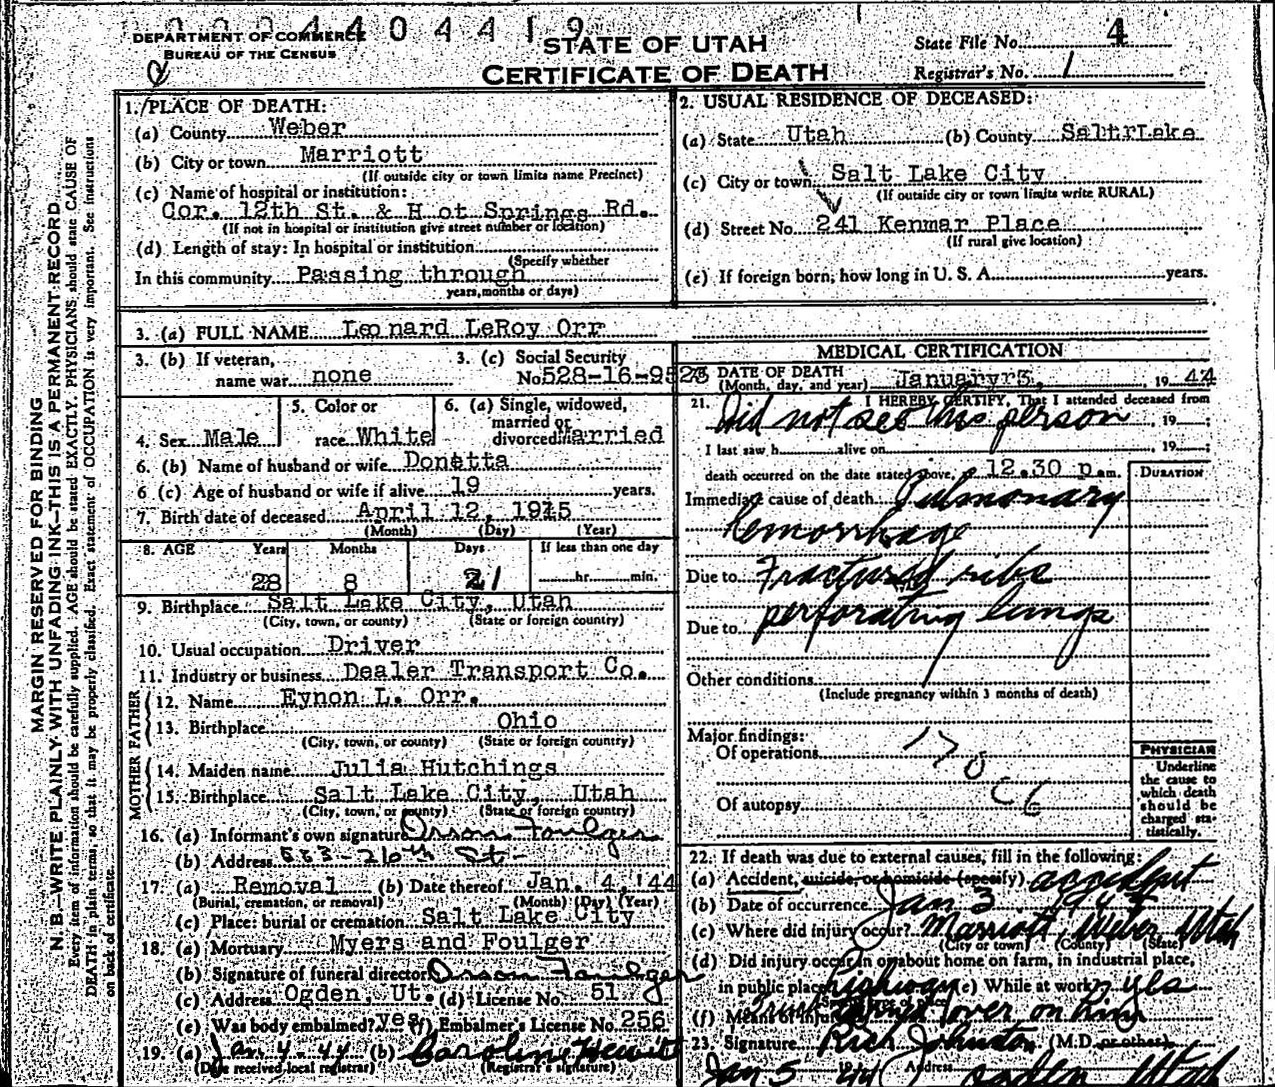 2 2 2 4 4 0 4 4 1 9
DEPARTMENT OF COMMERCE
BUREAU OF THE CENSUS
STATE OF UTAH
CERTIFICATE OF DEATH
State File No. 4
Registrar's No. 1
MARGIN RESERVED FOR BINDING
N. B.—WRITE PLAINLY, WITH UNFADING INK—THIS IS A PERMANENT RECORD
Every item of information should be carefully supplied. AGE should be stated EXACTLY. PHYSICIANS should state CAUSE OF
DEATH in plain terms, so that it may be properly classified. Exact statement of OCCUPATION is very important. See instructions
on back of certificate.
1. PLACE OF DEATH:
(a) County Weber
(b) City or town Marriott
(If outside city or town limits name Precinct)
(c) Name of hospital or institution:
Cor. 12th St. & H ot Springs Rd.
(If not in hospital or institution give street number or location)
(d) Length of stay: In hospital or institution
(Specify whether
In this community Passing through
years, months or days)
2. USUAL RESIDENCE OF DECEASED:
(a) State Utah (b) County Salt Lake
(c) City or town Salt Lake City
(If outside city or town limits write RURAL)
(d) Street No. 241 Kenmar Place
(If rural give location)
(e) If foreign born, how long in U. S. A. years.
3. (a) FULL NAME Leonard LeRoy Orr
3. (b) If veteran,
name war none
3. (c) Social Security
No. 528-16-9523
4. Sex Male
5. Color or
race White
6. (a) Single, widowed,
married or
divorced Married
6. (b) Name of husband or wife Donetta
6 (c) Age of husband or wife if alive 19 years.
7. Birth date of deceased April 12, 1915
(Month) (Day) (Year)
8. AGE Years Months Days If less than one day
28 8 21 hr. min.
9. Birthplace Salt Lake City, Utah
(City, town, or county) (State or foreign country)
10. Usual occupation Driver
11. Industry or business Dealer Transport Co.
FATHER
12. Name Eynon L. Orr.
13. Birthplace Ohio
(City, town, or county) (State or foreign country)
MOTHER
14. Maiden name Julia Hutchings
15. Birthplace Salt Lake City, Utah
(City, town, or county) (State or foreign country)
16. (a) Informant's own signature Orson Foulger
(b) Address 533-26th St-
17. (a) Removal (b) Date thereof Jan. 4, '44
(Burial, cremation, or removal) (Month) (Day) (Year)
(c) Place: burial or cremation Salt Lake City
18. (a) Mortuary Myers and Foulger
(b) Signature of funeral director Orson Foulger
(c) Address Ogden, Ut. (d) License No. 51
(e) Was body embalmed? yes (f) Embalmer's License No. 256
19. (a) Jan 4-44 (b) Caroline Hewitt
(Date received local registrar) (Registrar's signature)
MEDICAL CERTIFICATION
DATE OF DEATH
(Month, day, and year) January 3, 1944
21. I HEREBY CERTIFY, That I attended deceased from
Did not see this person, 19
I last saw h alive on , 19 ;
death occurred on the date stated above, 12.30 p.m.
DURATION
Immediate cause of death Pulmonary
hemorrhage
Due to Fractured ribs
Due to perforating lungs
Other conditions
(Include pregnancy within 3 months of death)
Major findings:
Of operations
170
Of autopsy
C6
PHYSICIAN
Underline
the cause to
which death
should be
charged sta-
tistically.
22. If death was due to external causes, fill in the following:
(a) Accident, suicide, or homicide (specify) accident
(b) Date of occurrence Jan 3
(c) Where did injury occur? Marriott, Weber Utah
(City or town) (County) (State)
(d) Did injury occur in or about home on farm, in industrial place,
in public place highway (e) While at work? yes
(Specify type of place)
(f) Means of injury turned over on him
23. Signature Rich Johnston (M.D. or other)
Jan 5 '44 Address Ogden Utah